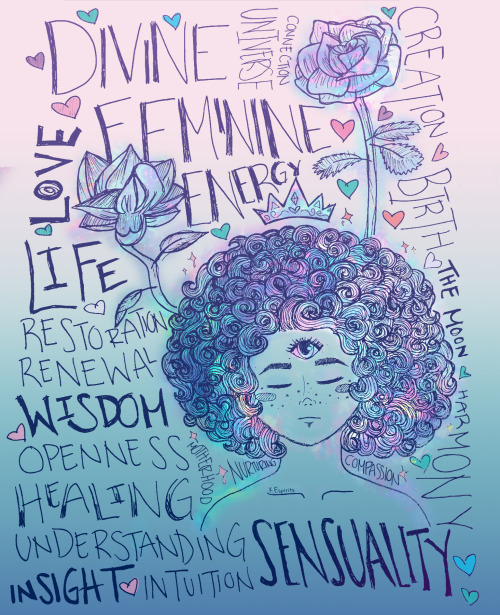 DIVINE
FEMININE
ENERGY
UNIVERSE
CONNECTION
CREATION
BIRTH
THE MOON
HARMONY
LOVE
LIFE
RESTORATION
RENEWAL
WISDOM
OPENNESS
MOTHERHOOD
NURTURING
COMPASSION
HEALING
UNDERSTANDING
INSIGHT
INTUITION
SENSUALITY